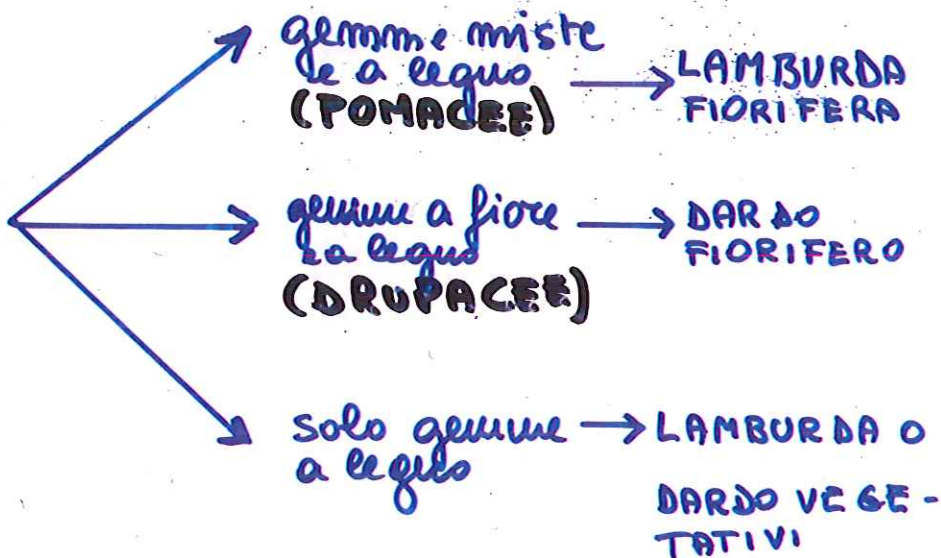 gemme miste
e a legno
(POMACEE)
→ LAMBURDA
FIORIFERA
gemme a fiore
e a legno
(DRUPACEE)
→ DARDO
FIORIFERO
solo gemme
a legno
→ LAMBURDA O
DARDO VEGE-
TATIVI